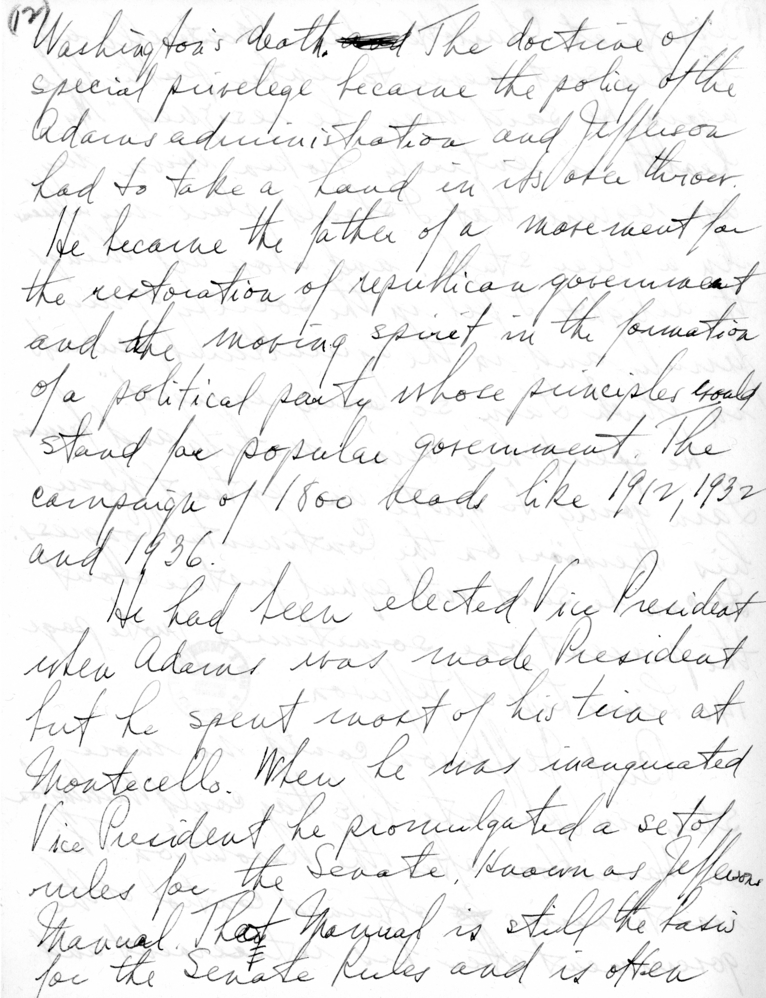 (12)
Washington's death. and The doctrine of
special privelege became the policy of the
Adams administration and Jefferson
had to take a hand in its over throw.
He became the father of a movement for
the restoration of republican government
and the moving spirit in the formation
of a political party whose principles would
stand for popular government. The
campaign of 1800 reads like 1912, 1932
and 1936.
He had been elected Vice President
when Adams was made President
but he spent most of his time at
Montecello. When he was inaugurated
Vice President he promulgated a set of
rules for the Senate, Known as Jeffersons
Manual. That Manual is still the basis
for the Senate Rules and is often